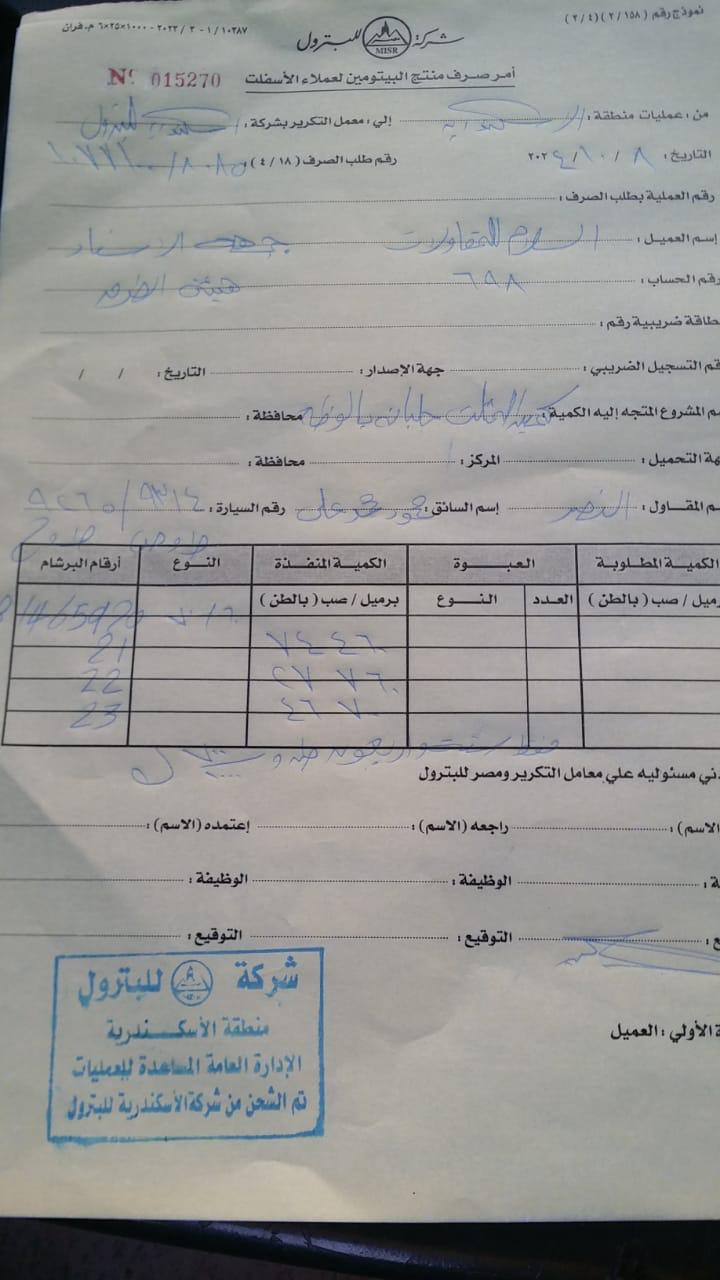 نموذج رقم (٢/١٥٨) (٢/٤)
٦×٢٥×١٠٠٠ - ٢٠٢٢ / ٣ - ١/١٠٢٨٧ م.فران
شركة MISR للبترول
أمر صرف منتج البيتومين لعملاء الأسفلت Nº 015270
من : عمليات منطقة : الاسكندرية إلي : معمل التكرير بشركة : اسكندرية للبترول
التاريخ : ٨ / ١٠ / ٢٠٢٤ رقم طلب الصرف (٤/١٨)
رقم العملية بطلب الصرف :
إسم العميل : السلام للمقاولات جهة الاسناد
رقم الحساب : ٦٩٨ هيئة الطرق
طاقة ضريبية رقم :
قم التسجيل الضريبي : جهة الإصدار : التاريخ : / /
م المشروع المتجه إليه الكمية : محافظة :
هة التحميل : المركز : محافظة :
م المقاول : النصر إسم السائق : محمود محمد على رقم السيارة : ٩٣١٤ / ٩٢٦٥
الكمية المطلوبة العبوة الكمية المنفذة النوع أرقام البرشام
رميل / صب (بالطن) العدد النوع برميل / صب (بالطن)
٦٠/٧٠ 81465920
٧٤٤٦٠ 21
٢٧٧٦٠ 22
٤٦٧٠٠ 23
فقط ستة واربعون طن و
ني مسئوليه علي معامل التكرير ومصر للبترول
الاسم) : راجعه (الاسم) : إعتمده (الاسم) :
ة : الوظيفة : الوظيفة :
ع : التوقيع : التوقيع :
ة الأولي : العميل
شركة للبترول
منطقة الأسكندرية
الإدارة العامة المساعدة للعمليات
تم الشحن من شركة الأسكندرية للبترول